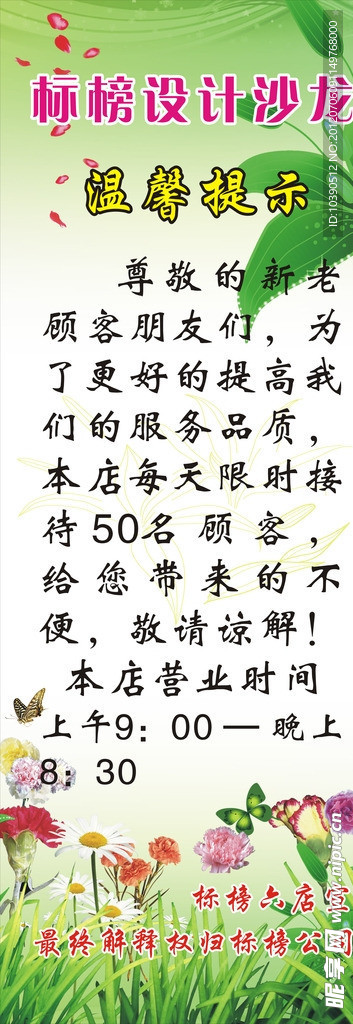 标榜设计沙龙
温馨提示
尊敬的新老
顾客朋友们，为
了更好的提高我
们的服务品质，
本店每天限时接
待50名顾客，
给您带来的不
便，敬请谅解！
本店营业时间
上午9：00—晚上
8：30
标榜六店
最终解释权归标榜公
ID:10390512 NO:20120706091149768000
昵享网 www.nipic.cn